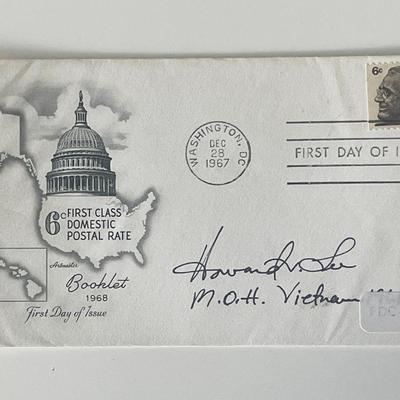 6c
WASHINGTON, DC
DEC
28
1967
FIRST DAY OF
6c FIRST CLASS
DOMESTIC
POSTAL RATE
Artmaster
Booklet
1968
First Day of Issue
Howard V. Lee
M.O.H. Vietnam
FDC